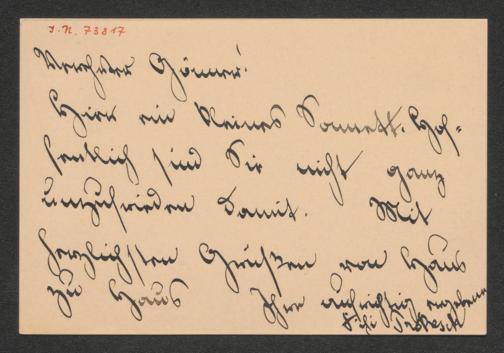 I.N. 73817
Verehrter Gönner!
Hier ein kleines Sonett. Hof-
fentlich sind Sie nicht ganz
unzufrieden damit. Mit
herzlichsten Grüßen von Haus
zu Haus Ihre aufrichtig ergebene